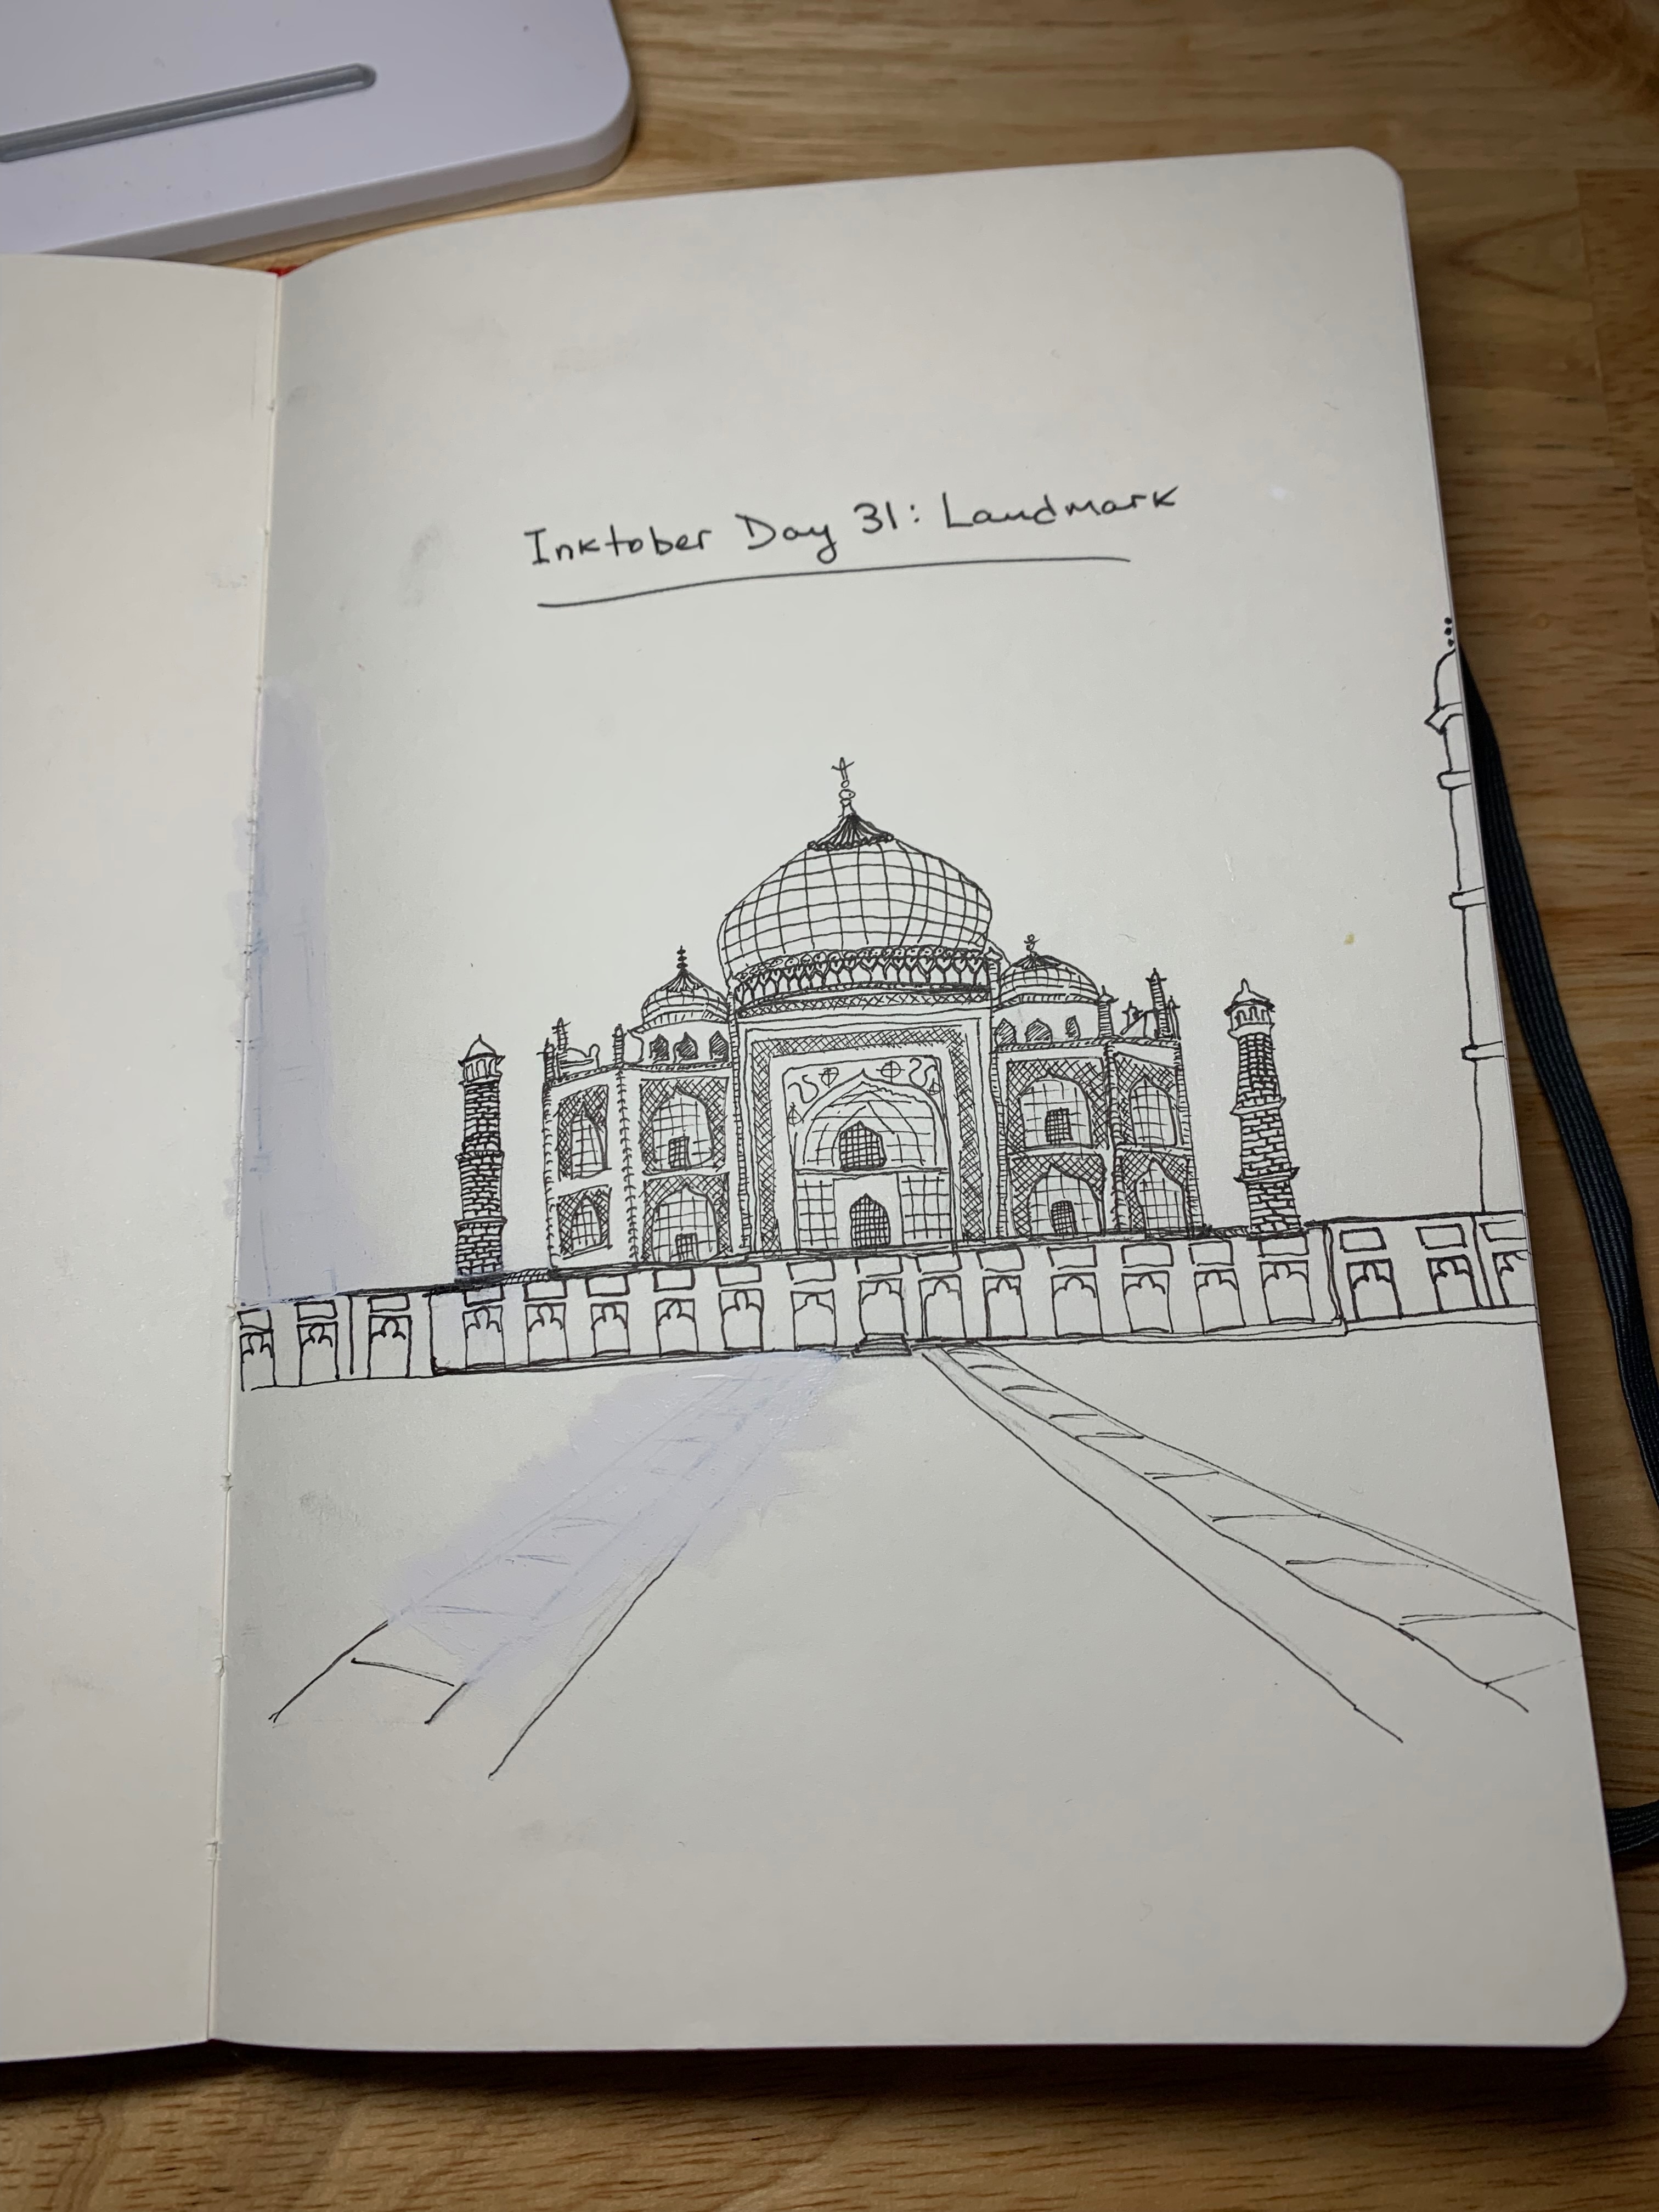 Inktober Day 31: Landmark